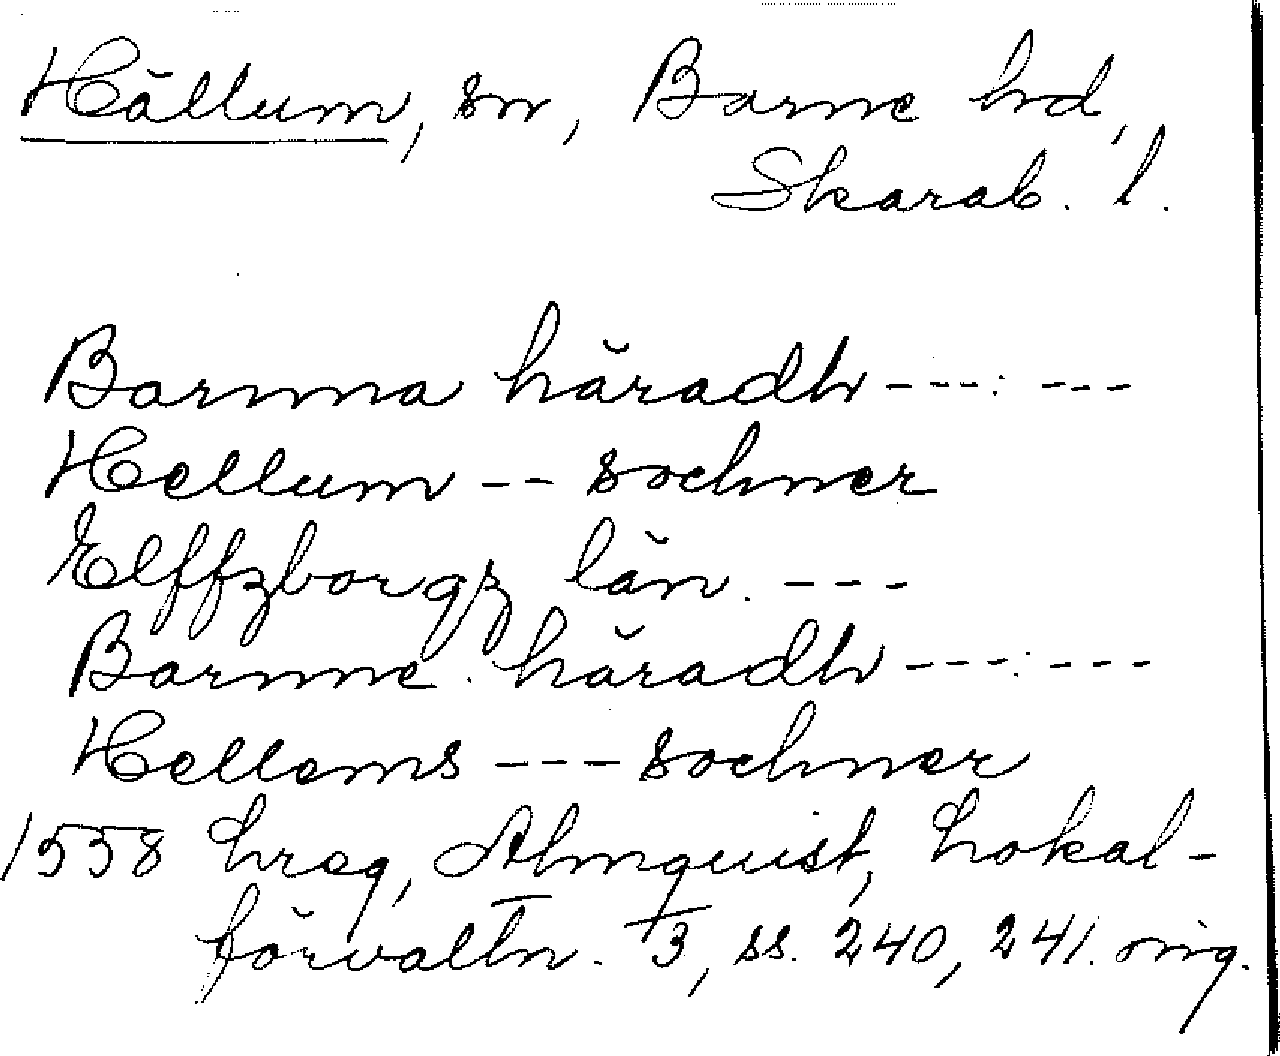 Hällum, sn, Barne hrd,
Skarab. l.
Barnna häradh ---: ---
Hellum -- sochner
Elffzborgz län. ---
Barnne häradh ---: ---
Hellems --- sochner
1558 hreg, Almquist, Lokal-
förvaltn. 3, ss. 240, 241. orig.